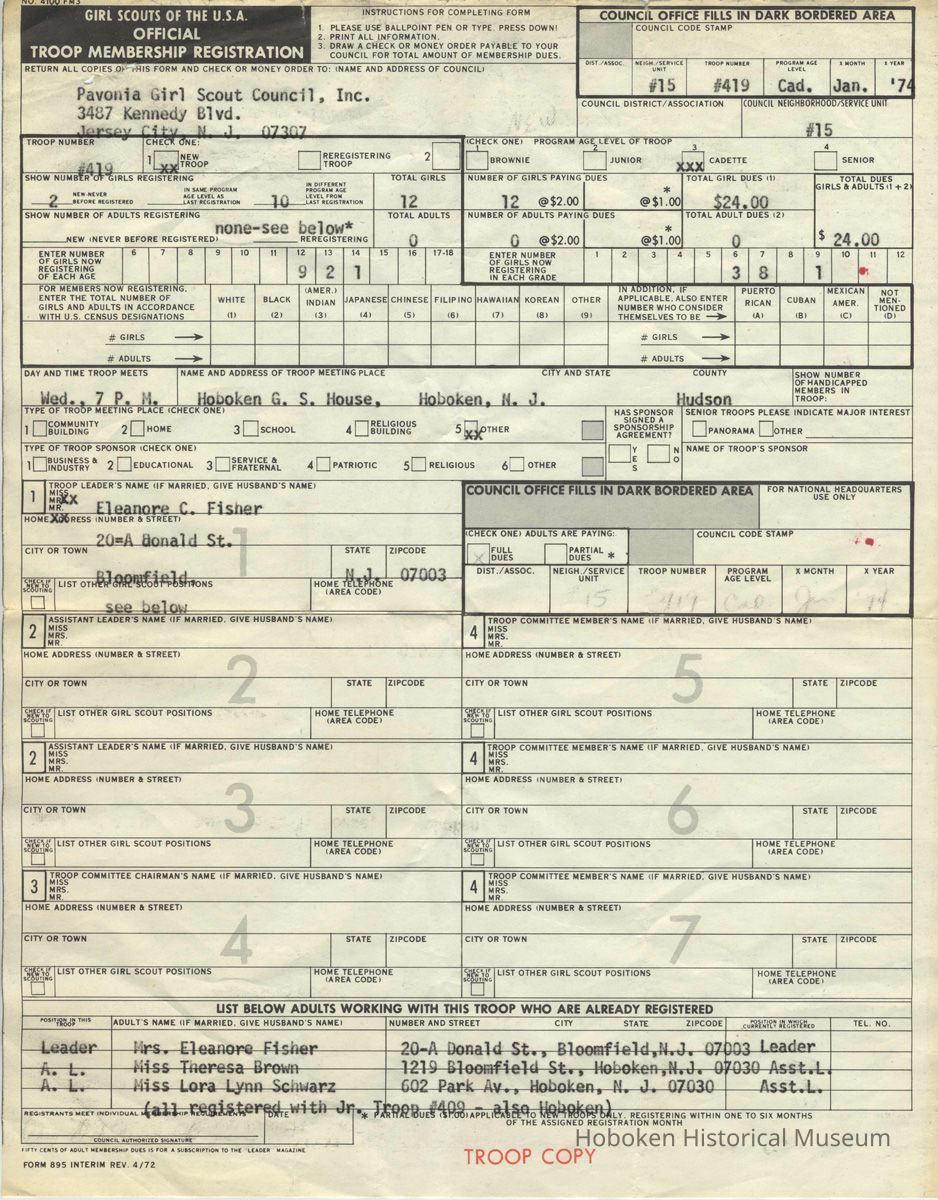 NO. 4100 FM3
GIRL SCOUTS OF THE U.S.A.
OFFICIAL
TROOP MEMBERSHIP REGISTRATION
INSTRUCTIONS FOR COMPLETING FORM
1. PLEASE USE BALLPOINT PEN OR TYPE. PRESS DOWN!
2. PRINT ALL INFORMATION.
3. DRAW A CHECK OR MONEY ORDER PAYABLE TO YOUR
COUNCIL FOR TOTAL AMOUNT OF MEMBERSHIP DUES.
COUNCIL OFFICE FILLS IN DARK BORDERED AREA
COUNCIL CODE STAMP
DIST./ASSOC. NEIGH./SERVICE UNIT TROOP NUMBER PROGRAM AGE LEVEL X MONTH X YEAR
#15 #419 Cad. Jan. '74
RETURN ALL COPIES OF THIS FORM AND CHECK OR MONEY ORDER TO: (NAME AND ADDRESS OF COUNCIL)
Pavonia Girl Scout Council, Inc.
3487 Kennedy Blvd.
Jersey City, N. J. 07307
NEW
COUNCIL DISTRICT/ASSOCIATION COUNCIL NEIGHBORHOOD/SERVICE UNIT
#15
TROOP NUMBER CHECK ONE:
#419 1 xx NEW TROOP REREGISTERING TROOP 2
(CHECK ONE) PROGRAM AGE LEVEL OF TROOP
1 BROWNIE 2 JUNIOR 3 xxx CADETTE 4 SENIOR
SHOW NUMBER OF GIRLS REGISTERING TOTAL GIRLS
2 NEW-NEVER BEFORE REGISTERED IN SAME PROGRAM AGE LEVEL AS LAST REGISTRATION 10 IN DIFFERENT PROGRAM AGE LEVEL FROM LAST REGISTRATION 12
NUMBER OF GIRLS PAYING DUES TOTAL GIRL DUES (1) TOTAL DUES GIRLS & ADULTS (1 + 2)
12 @$2.00 * @$1.00 $24.00
SHOW NUMBER OF ADULTS REGISTERING TOTAL ADULTS
none-see below*
NEW (NEVER BEFORE REGISTERED) REREGISTERING 0
NUMBER OF ADULTS PAYING DUES TOTAL ADULT DUES (2)
0 @$2.00 * @$1.00 0 $ 24.00
ENTER NUMBER OF GIRLS NOW REGISTERING OF EACH AGE 6 7 8 9 10 11 12 13 14 15 16 17-18
9 2 1
ENTER NUMBER OF GIRLS NOW REGISTERING IN EACH GRADE 1 2 3 4 5 6 7 8 9 10 11 12
3 8 1
FOR MEMBERS NOW REGISTERING, ENTER THE TOTAL NUMBER OF GIRLS AND ADULTS IN ACCORDANCE WITH U.S. CENSUS DESIGNATIONS
WHITE (1) BLACK (2) (AMER.) INDIAN (3) JAPANESE (4) CHINESE (5) FILIPINO (6) HAWAIIAN (7) KOREAN (8) OTHER (9)
IN ADDITION, IF APPLICABLE, ALSO ENTER NUMBER WHO CONSIDER THEMSELVES TO BE
PUERTO RICAN (A) CUBAN (B) MEXICAN AMER. (C) NOT MEN-TIONED (D)
# GIRLS # GIRLS
# ADULTS # ADULTS
DAY AND TIME TROOP MEETS NAME AND ADDRESS OF TROOP MEETING PLACE CITY AND STATE COUNTY SHOW NUMBER OF HANDICAPPED MEMBERS IN TROOP:
Wed., 7 P. M. Hoboken G. S. House, Hoboken, N. J. Hudson
TYPE OF TROOP MEETING PLACE (CHECK ONE)
1 COMMUNITY BUILDING 2 HOME 3 SCHOOL 4 RELIGIOUS BUILDING 5 xx OTHER
HAS SPONSOR SIGNED A SPONSORSHIP AGREEMENT?
YES NO
SENIOR TROOPS PLEASE INDICATE MAJOR INTEREST
PANORAMA OTHER
TYPE OF TROOP SPONSOR (CHECK ONE)
1 BUSINESS & INDUSTRY 2 EDUCATIONAL 3 SERVICE & FRATERNAL 4 PATRIOTIC 5 RELIGIOUS 6 OTHER
NAME OF TROOP'S SPONSOR
1 TROOP LEADER'S NAME (IF MARRIED, GIVE HUSBAND'S NAME)
MISS
MRS. xx
MR. xx
Eleanore C. Fisher
HOME ADDRESS (NUMBER & STREET)
20=A Donald St.
1
CITY OR TOWN STATE ZIPCODE
Bloomfield, N.J. 07003
CHECK IF NEW TO SCOUTING LIST OTHER GIRL SCOUT POSITIONS HOME TELEPHONE (AREA CODE)
see below
COUNCIL OFFICE FILLS IN DARK BORDERED AREA
FOR NATIONAL HEADQUARTERS USE ONLY
(CHECK ONE) ADULTS ARE PAYING:
x FULL DUES PARTIAL DUES *
COUNCIL CODE STAMP
DIST./ASSOC. NEIGH./SERVICE UNIT TROOP NUMBER PROGRAM AGE LEVEL X MONTH X YEAR
15 #419 Cad Jan '74
2 ASSISTANT LEADER'S NAME (IF MARRIED, GIVE HUSBAND'S NAME)
MISS
MRS.
MR.
HOME ADDRESS (NUMBER & STREET)
2
CITY OR TOWN STATE ZIPCODE
CHECK IF NEW TO SCOUTING LIST OTHER GIRL SCOUT POSITIONS HOME TELEPHONE (AREA CODE)
4 TROOP COMMITTEE MEMBER'S NAME (IF MARRIED, GIVE HUSBAND'S NAME)
MISS
MRS.
MR.
HOME ADDRESS (NUMBER & STREET)
5
CITY OR TOWN STATE ZIPCODE
CHECK IF NEW TO SCOUTING LIST OTHER GIRL SCOUT POSITIONS HOME TELEPHONE (AREA CODE)
2 ASSISTANT LEADER'S NAME (IF MARRIED, GIVE HUSBAND'S NAME)
MISS
MRS.
MR.
HOME ADDRESS (NUMBER & STREET)
3
CITY OR TOWN STATE ZIPCODE
CHECK IF NEW TO SCOUTING LIST OTHER GIRL SCOUT POSITIONS HOME TELEPHONE (AREA CODE)
4 TROOP COMMITTEE MEMBER'S NAME (IF MARRIED, GIVE HUSBAND'S NAME)
MISS
MRS.
MR.
HOME ADDRESS (NUMBER & STREET)
6
CITY OR TOWN STATE ZIPCODE
CHECK IF NEW TO SCOUTING LIST OTHER GIRL SCOUT POSITIONS HOME TELEPHONE (AREA CODE)
3 TROOP COMMITTEE CHAIRMAN'S NAME (IF MARRIED, GIVE HUSBAND'S NAME)
MISS
MRS.
MR.
HOME ADDRESS (NUMBER & STREET)
4
CITY OR TOWN STATE ZIPCODE
CHECK IF NEW TO SCOUTING LIST OTHER GIRL SCOUT POSITIONS HOME TELEPHONE (AREA CODE)
4 TROOP COMMITTEE MEMBER'S NAME (IF MARRIED, GIVE HUSBAND'S NAME)
MISS
MRS.
MR.
HOME ADDRESS (NUMBER & STREET)
7
CITY OR TOWN STATE ZIPCODE
CHECK IF NEW TO SCOUTING LIST OTHER GIRL SCOUT POSITIONS HOME TELEPHONE (AREA CODE)
LIST BELOW ADULTS WORKING WITH THIS TROOP WHO ARE ALREADY REGISTERED
POSITION IN THIS TROOP ADULT'S NAME (IF MARRIED, GIVE HUSBAND'S NAME) NUMBER AND STREET CITY STATE ZIPCODE POSITION IN WHICH CURRENTLY REGISTERED TEL. NO.
Leader Mrs. Eleanore Fisher 20-A Donald St., Bloomfield,N.J. 07003 Leader
A. L. Miss Theresa Brown 1219 Bloomfield St., Hoboken,N.J. 07030 Asst.L.
A. L. Miss Lora Lynn Schwarz 602 Park Av., Hoboken, N. J. 07030 Asst.L.
(all registered with Jr. Troop #409 - also Hoboken)
REGISTRANTS MEET INDIVIDUAL MEMBERSHIP REQUIREMENTS DATE * PARTIAL DUES ($1.00) APPLICABLE TO NEW TROOPS ONLY, REGISTERING WITHIN ONE TO SIX MONTHS
OF THE ASSIGNED REGISTRATION MONTH
COUNCIL AUTHORIZED SIGNATURE
Hoboken Historical Museum
FIFTY CENTS OF ADULT MEMBERSHIP DUES IS FOR A SUBSCRIPTION TO THE "LEADER" MAGAZINE
TROOP COPY
FORM 895 INTERIM REV. 4/72